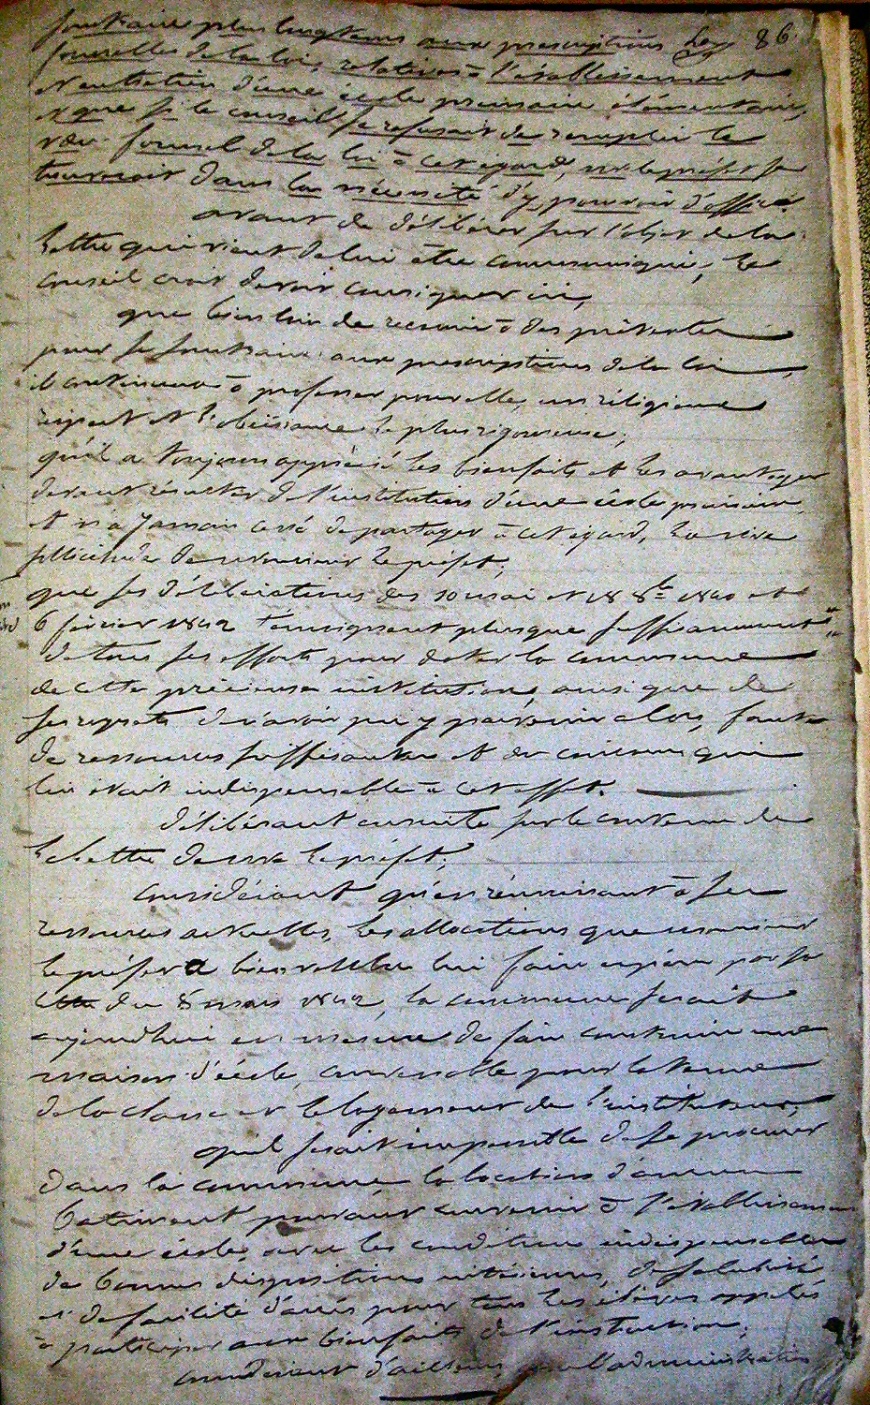 86.
soustraire plus longtems aux prescriptions
formelles de la loi, relatives à l'établissement
et entretien d'une école primaire élémentaire,
et que si le conseil se refusait de remplir le
vœu formel de la loi à cet égard, mr le préfet se
trouverait dans la nécessité d'y pourvoir d'office.
avant de délibérer sur l'objet de la
lettre qui vient de lui être communiquée, le
conseil croit devoir consigner ici,
que bien loin de recourir à des prétextes
pour se soustraire aux prescriptions de la loi,
il continuera à professer pour elle, un réligieux
respect et l'obéissance la plus rigoureuse;
qu'il a toujours apprécié les bienfaits et les avantages
devant résulter de l'institution d'une école primaire,
et n'a jamais cessé de partager à cet égard, la vive
sollicitude de monsieur le préfet;
que ses délibérations des 10 mai et 18 8bre 1840 et
6 février 1842 témoignent plus que suffisamment
de tous ses efforts pour doter la commune
de cette précieuse institution, ainsi que de
ses regrets de n'avoir pu y parvenir alors, faute
de ressources suffisantes et du concours qui
lui était indispensable à cet effet.
délibérant ensuite sur le contenu de
la lettre de mr le préfet;
considérant qu'en réunissant à ses
ressources actuelles, les allocations que monsieur
le préfet a bien voulu lui faire espérer par sa
lettre du 8 mars 1842, la commune serait
aujourd'hui en mesure de faire construire une
maison d'école, convenable pour la tenue
de la classe et le logement de l'instituteur;
qu'il serait impossible de se procurer
dans la commune la location d'aucun
batiment pouvant convenir à l'établissement
d'une école, avec les conditions indispensables
de bonnes dispositions intérieures, de salubrité
et de facilité d'accès pour tous les élèves appelés
à participer aux bienfaits de l'instruction;
considérant d'ailleurs, que l'administration